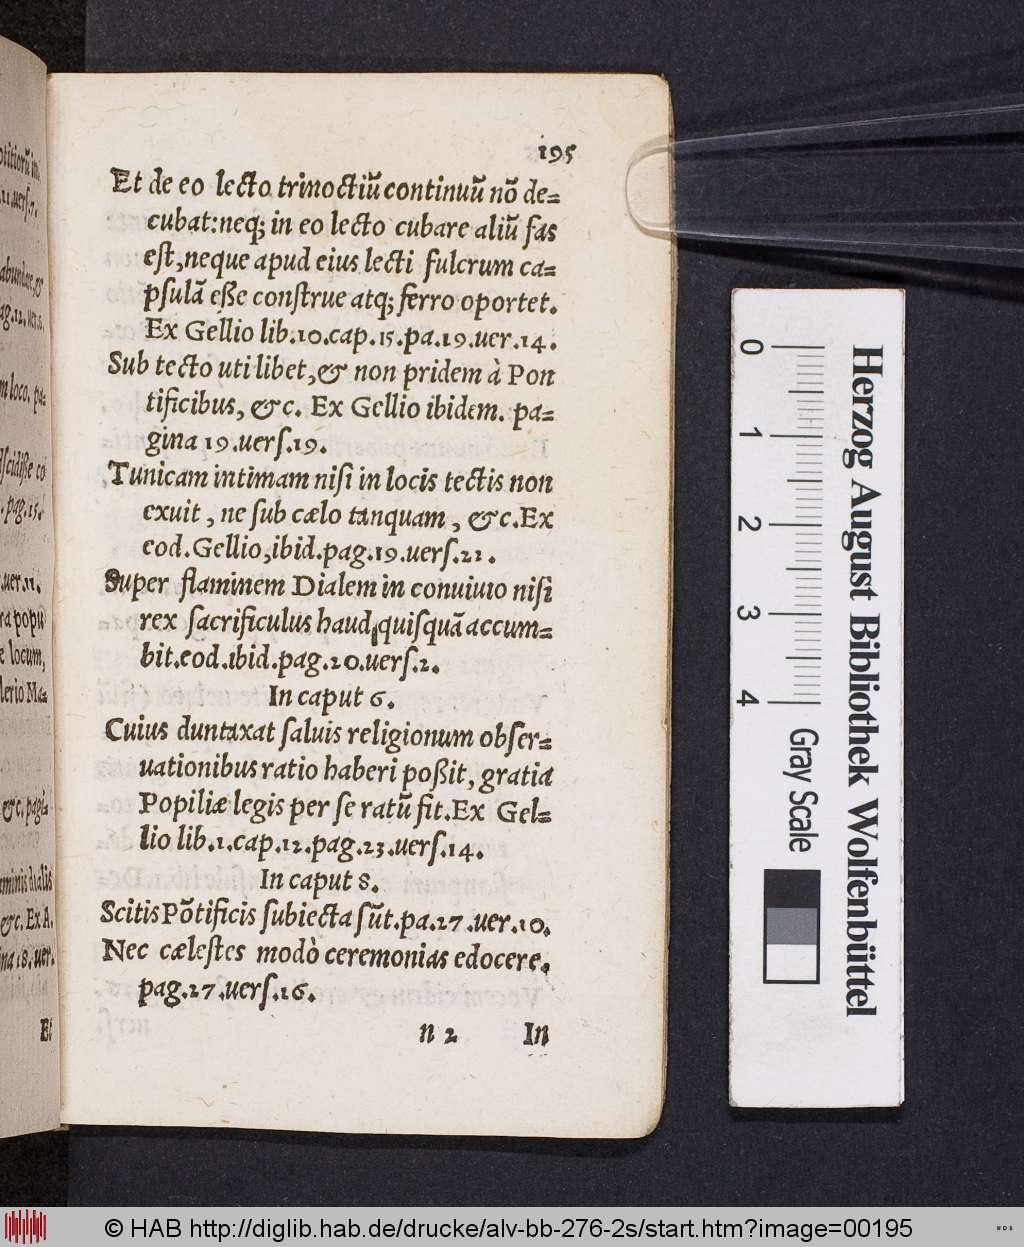 195
Et de eo lecto trinoctiũ continuũ nõ de=
cubat: neq; in eo lecto cubare aliũ fas
eſt, neque apud eius lecti fulcrum ca=
pſulã eſſe conſtrue atq; ferro oportet.
Ex Gellio lib.10.cap.15.pa.19.uer.14.
Sub tecto uti libet, & non pridem à Pon
tificibus, &c. Ex Gellio ibidem. pa=
gina 19.uerſ.19.
Tunicam intimam niſi in locis tectis non
exuit, ne ſub cælo tanquam, &c.Ex
eod.Gellio,ibid.pag.19.uerſ.21.
Super flaminem Dialem in conuiuio niſi
rex ſacrificulus haud quiſquã accum=
bit.eod.ibid.pag.20.uerſ.2.
In caput 6.
Cuius duntaxat ſaluis religionum obſer=
uationibus ratio haberi poſſit, gratia
Popiliæ legis per ſe ratũ fit.Ex Gel=
lio lib.1.cap.12.pag.23.uerſ.14.
In caput 8.
Scitis Põtificis ſubiecta ſũt.pa.27.uer.10.
Nec cæleſtes modò ceremonias edocere.
pag.27.uerſ.16.
n 2 In
otitiorũ in
.11.uerſ.7.
abundare,&
ag.12.uer.6.
m loco. pa=
dſcidiſſe cõ
.pag.15.
.uer.11.
ra popu
e locum,
lerio Ma=
&c.pagi=
aminis dialis
&c.Ex A.
ina 18.uer.
Et
0 1 2 3 4
Gray Scale
Herzog August Bibliothek Wolfenbüttel
© HAB http://diglib.hab.de/drucke/alv-bb-276-2s/start.htm?image=00195
WDB